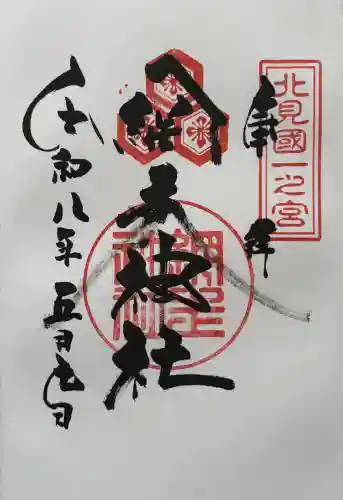 北見國一之宮
奉拝
網走神社
網走神社
令和八年五月七日